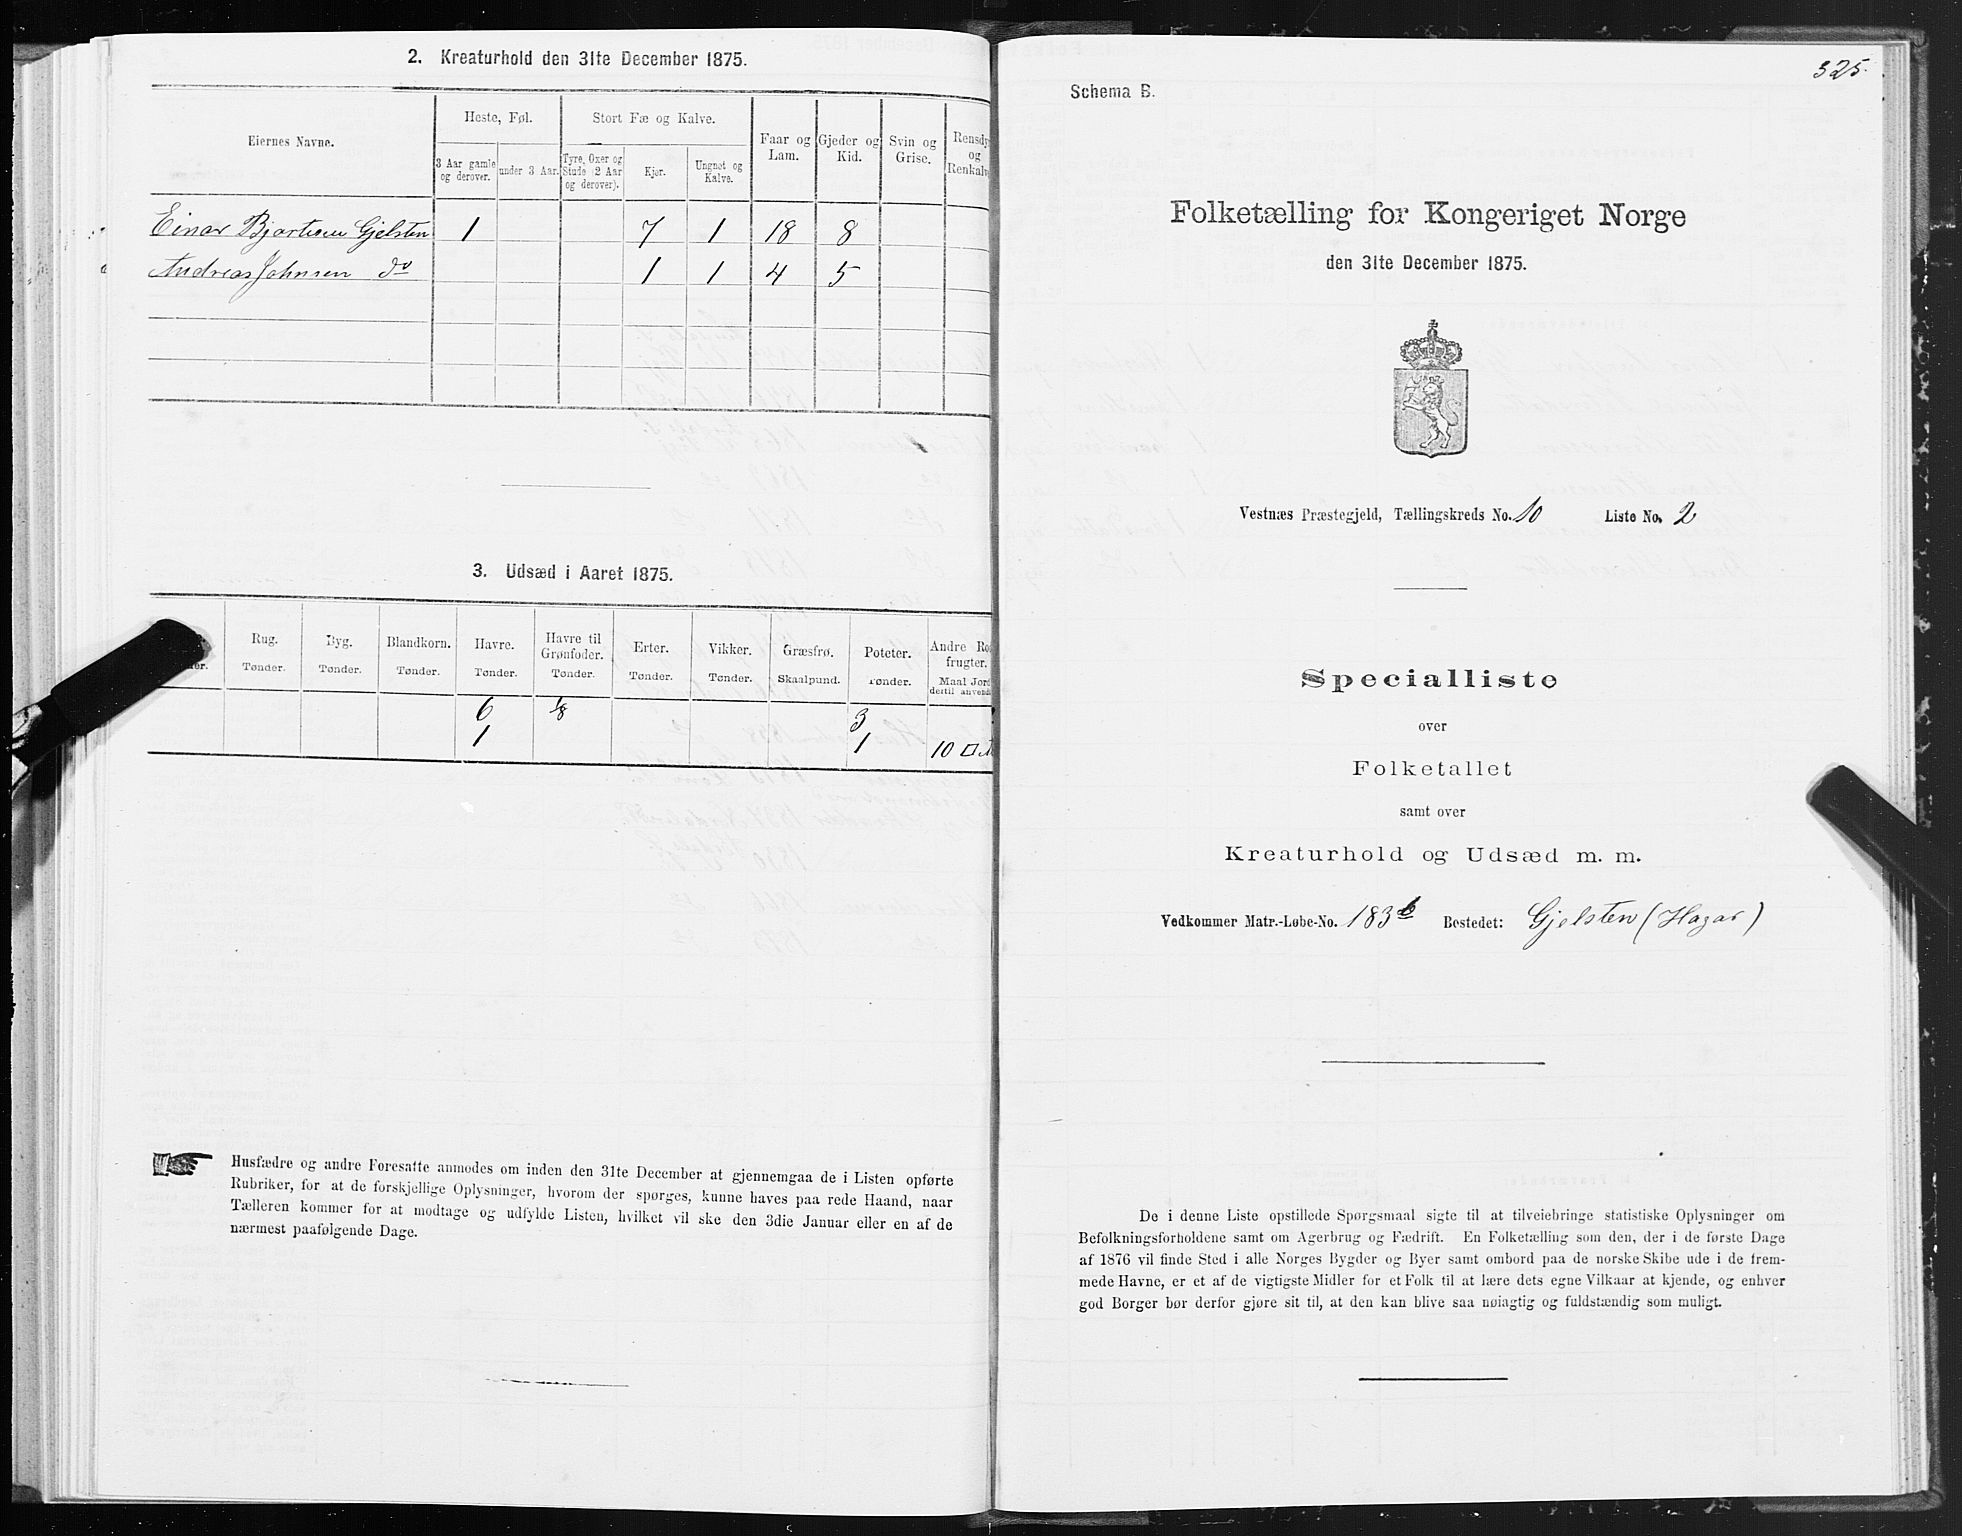 2. Kreaturhold den 31te December 1875.
Eiernes Navne.
Heste, Føl.
Stort Fæ og Kalve.
Faar og Lam.
Gjeder og Kid.
Svin og Grise.
Rensdy og Renkalv
3 Aar gamle og derover.
under 3 Aar.
Tyre, Oxer og Stude (2 Aar og derover).
Kjør.
Ungnøt og Kalve.
Einar Gjelsten 1 7 1 18 8
Andreas Johnsen do 1 1 4 5
3. Udsæd i Aaret 1875.
Rug. Byg. Blandkorn. Havre. Havre til Grønfoder. Erter. Vikker. Græsfrø. Poteter. Andre Ro frugter.
der. Tønder. Tønder. Tønder. Tønder. Tønder. Tønder. Tønder. Skaalpund. Tønder. Maal Jord dertil anvend
6 1/8 3
1 1 10 □
Husfædre og andre Foresatte anmodes om inden den 31te December at gjennemgaa de i Listen opførte
Rubriker, for at de forskjellige Oplysninger, hvorom der spørges, kunne haves paa rede Haand, naar
Tælleren kommer for at modtage og udfylde Listen, hvilket vil ske den 3die Januar eller en af de
nærmest paafølgende Dage.
325.
Schema B.
Folketælling for Kongeriget Norge
den 31te December 1875.
Vestnæs Præstegjeld, Tællingskreds No. 10 Liste No. 2
Specialliste
over
Folketallet
samt over
Kreaturhold og Udsæd m. m.
Vedkommer Matr.-Løbe-No. 183 b Bostedet: Gjelsten (Hagar)
De i denne Liste opstillede Spørgsmaal sigte til at tilveiebringe statistiske Oplysninger om
Befolkningsforholdene samt om Agerbrug og Fædrift. En Folketælling som den, der i de første Dage
af 1876 vil finde Sted i alle Norges Bygder og Byer samt ombord paa de norske Skibe ude i de frem-
mede Havne, er et af de vigtigste Midler for et Folk til at lære dets egne Vilkaar at kjende, og enhver
god Borger bør derfor gjøre sit til, at den kan blive saa nøiagtig og fuldstændig som muligt.